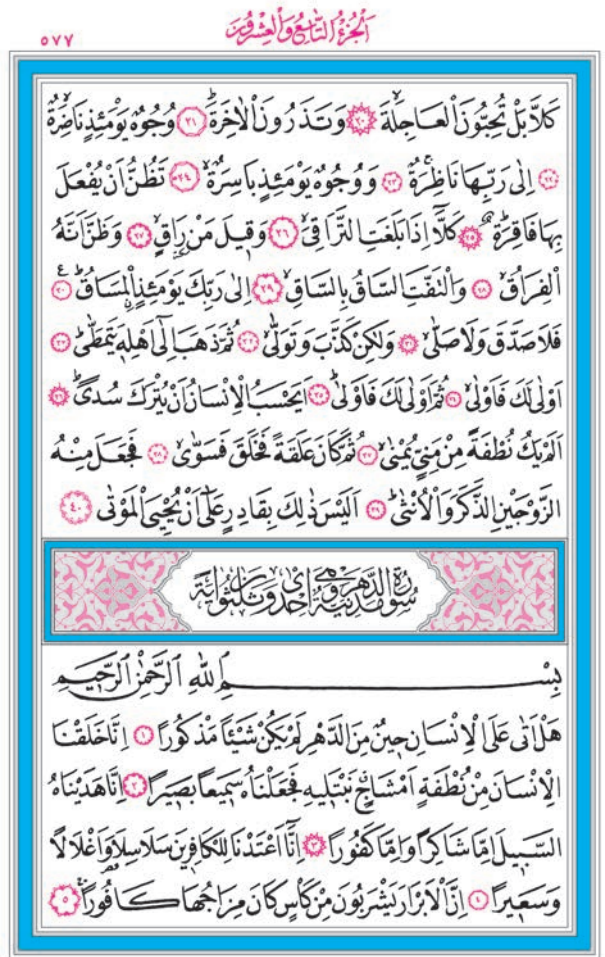 اَلْجُزْءُ التَّاسِعُ وَالْعِشْرُونَ
٥٧٧
كَلَّا بَلْ تُحِبُّونَ الْعَاجِلَةَۙ ﴿٢٠﴾ وَتَذَرُونَ الْاٰخِرَةَۜ ﴿٢١﴾ وُجُوهٌ يَوْمَئِذٍ نَاضِرَةٌۙ
﴿٢٢﴾ اِلٰى رَبِّهَا نَاظِرَةٌۚ ﴿٢٣﴾ وَوُجُوهٌ يَوْمَئِذٍ بَاسِرَةٌۙ ﴿٢٤﴾ تَظُنُّ اَنْ يُفْعَلَ
بِهَا فَاقِرَةٌۜ ﴿٢٥﴾ كَلَّٓا اِذَا بَلَغَتِ التَّرَاقِيَۙ ﴿٢٦﴾ وَق۪يلَ مَنْ رَاقٍۙ ﴿٢٧﴾ وَظَنَّ اَنَّهُ
الْفِرَاقُۙ ﴿٢٨﴾ وَالْتَفَّتِ السَّاقُ بِالسَّاقِۙ ﴿٢٩﴾ اِلٰى رَبِّكَ يَوْمَئِذٍ الْمَسَاقُۜ ع ﴿٣٠﴾
فَلَا صَدَّقَ وَلَا صَلّٰىۙ ﴿٣١﴾ وَلٰكِنْ كَذَّبَ وَتَوَلّٰىۙ ﴿٣٢﴾ ثُمَّ ذَهَبَ اِلٰٓى اَهْلِه۪ يَتَمَطّٰىۜ ﴿٣٣﴾
اَوْلٰى لَكَ فَاَوْلٰىۙ ﴿٣٤﴾ ثُمَّ اَوْلٰى لَكَ فَاَوْلٰىۜ ﴿٣٥﴾ اَيَحْسَبُ الْاِنْسَانُ اَنْ يُتْرَكَ سُدًىۜ ﴿٣٦﴾
اَلَمْ يَكُ نُطْفَةً مِنْ مَنِيٍّ يُمْنٰىۙ ﴿٣٧﴾ ثُمَّ كَانَ عَلَقَةً فَخَلَقَ فَسَوّٰىۙ ﴿٣٨﴾ فَجَعَلَ مِنْهُ
الزَّوْجَيْنِ الذَّكَرَ وَالْاُنْثٰىۜ ﴿٣٩﴾ اَلَيْسَ ذٰلِكَ بِقَادِرٍ عَلٰٓى اَنْ يُحْيِيَ الْمَوْتٰى ﴿٤٠﴾
سُورَةُ الدَّهْرِ مَدَنِيَّةٌ وَهِيَ اِحْدٰى وَثَلٰثُونَ اٰيَةً
بِسْمِ اللّٰهِ الرَّحْمٰنِ الرَّح۪يمِ
هَلْ اَتٰى عَلَى الْاِنْسَانِ ح۪ينٌ مِنَ الدَّهْرِ لَمْ يَكُنْ شَيْـًٔا مَذْكُورًا ﴿١﴾ اِنَّا خَلَقْنَا
الْاِنْسَانَ مِنْ نُطْفَةٍ اَمْشَاجٍۗ نَبْتَل۪يهِ فَجَعَلْنَاهُ سَم۪يعًا بَص۪يرًا ﴿٢﴾ اِنَّا هَدَيْنَاهُ
السَّب۪يلَ اِمَّا شَاكِرًا وَاِمَّا كَفُورًا ﴿٣﴾ اِنَّٓا اَعْتَدْنَا لِلْكَافِر۪ينَ سَلَاسِلَا۬ وَاَغْلَالًا
وَسَع۪يرًا ﴿٤﴾ اِنَّ الْاَبْرَارَ يَشْرَبُونَ مِنْ كَأْسٍ كَانَ مِزَاجُهَا كَافُورًاۚ ﴿٥﴾